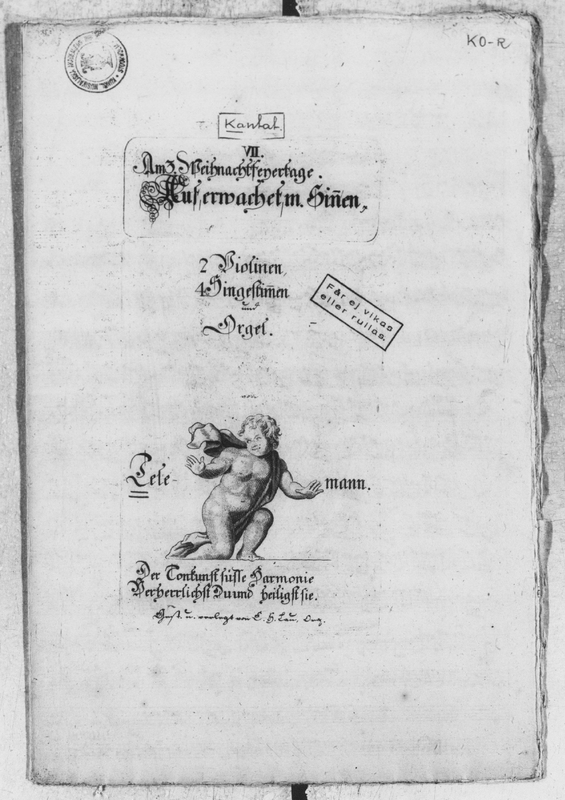 KO-R
Kantat.
VII.
Am 3. Weihnachtsfeyertage.
Auf, erwachet, m. Siñen,
2 Violinen,
4 Singestim̃en
und
Orgel.
Får ej vikas
eller rullas.
von
Tele-
mann.
Der Tonkunst süsse Harmonie
Verherrlichst Du und heiligst sie.
u. verlegt von C. H. Lau, Org.